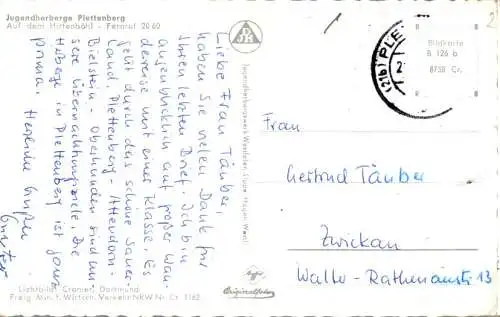 Jugendherberge Plettenberg
Auf dem Hirtenböhl - Fernruf 2060
Liebe Frau Täuber,
haben Sie vielen Dank für
Ihren letzten Brief. Ich bin
augenblicklich auf großer Wan-
derreise mit einer Klasse. Es
geht durch das schöne Sauer-
land. Plettenberg - Attendorn -
Bilstein - Oberhundem sind un-
sere Übernachtungsziele. Die
Huberge in Plettenberg ist ganz
prima. Herzliche Grüße
Günter
Lichtbild: Cramer, Dortmund
Freig. Min. f. Wirtsch. Verkehr NRW Nr. Cr. 1162
Jugendherbergswerk Westfalen-Lippe, Hagen Westf.
Originalfoto
(21b) PLE
Bildkarte
B 126 b
8758 Cr.
Frau
Gertrud Täuber
Zwickau
Walter-Rathenaustr 13